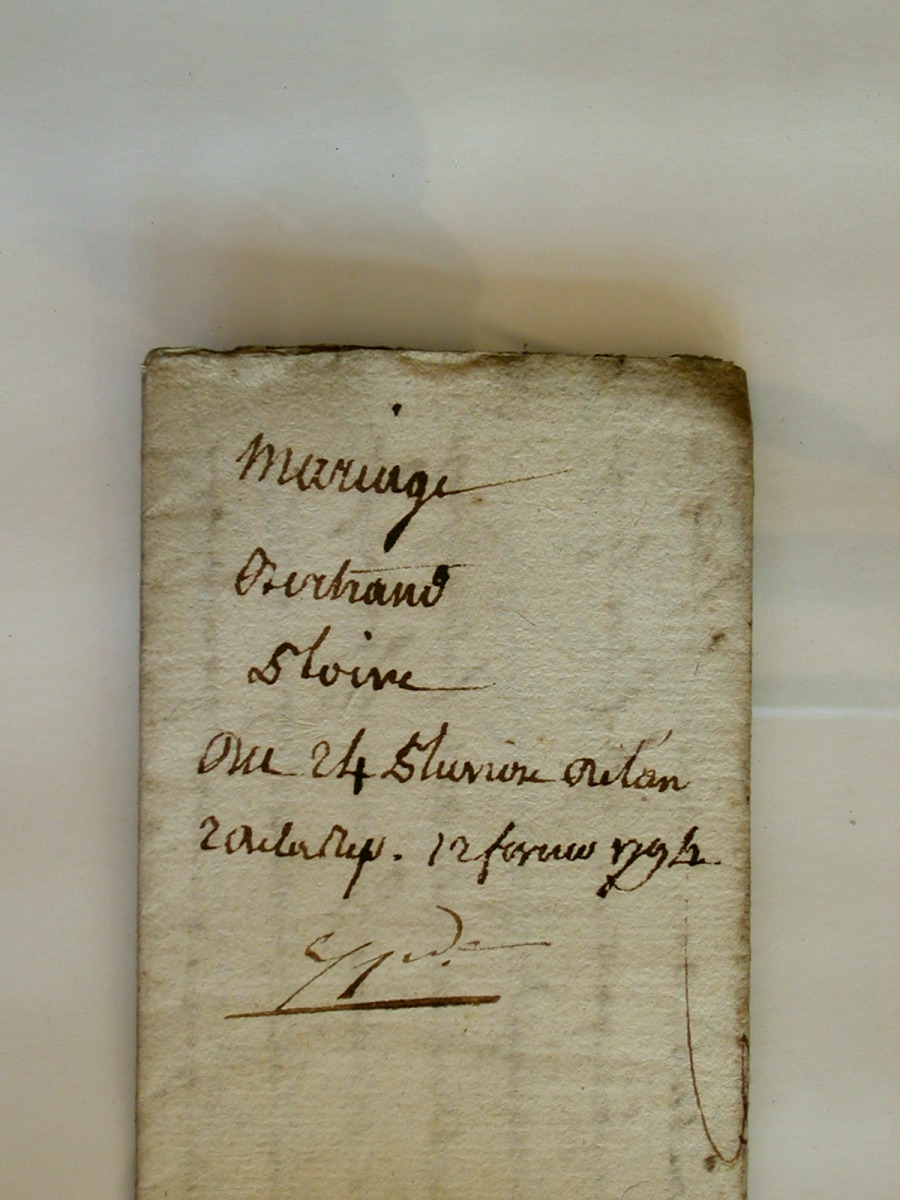 Mariage
Bertrand
Floire
Du 24 Pluviose de l'an
2 de la Rep. 12 fevrier 1794
Exp.de